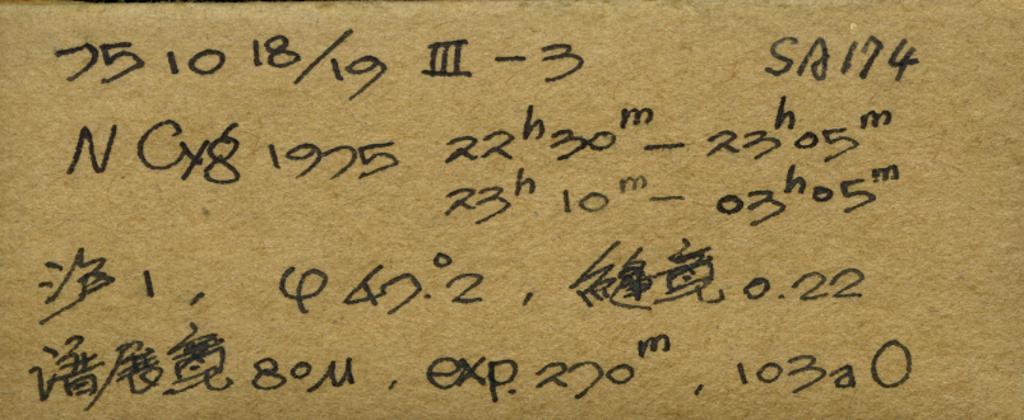 75 10 18/19 III - 3 SA174
N Cyg 1975 22ʰ30ᵐ - 23ʰ05ᵐ
23ʰ 10ᵐ - 03ʰ05ᵐ
1, φ 47.°2, 縫寬 0.22
譜展寬 80μ. exp. 270ᵐ, 103aO